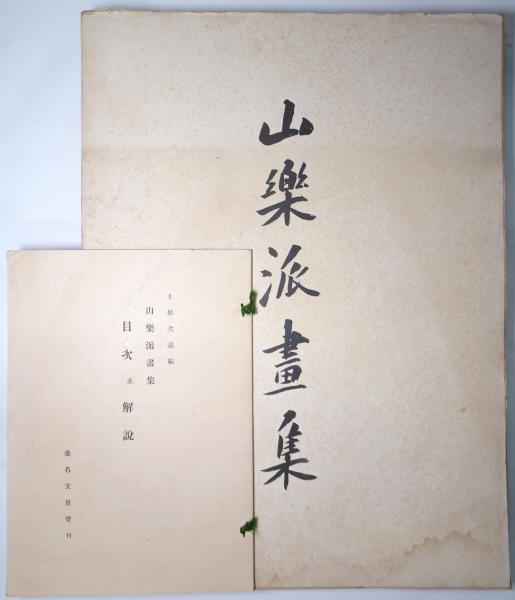 山樂派畫集
土居次義編
山樂派畫集
目次並解說
桑名文星堂刊